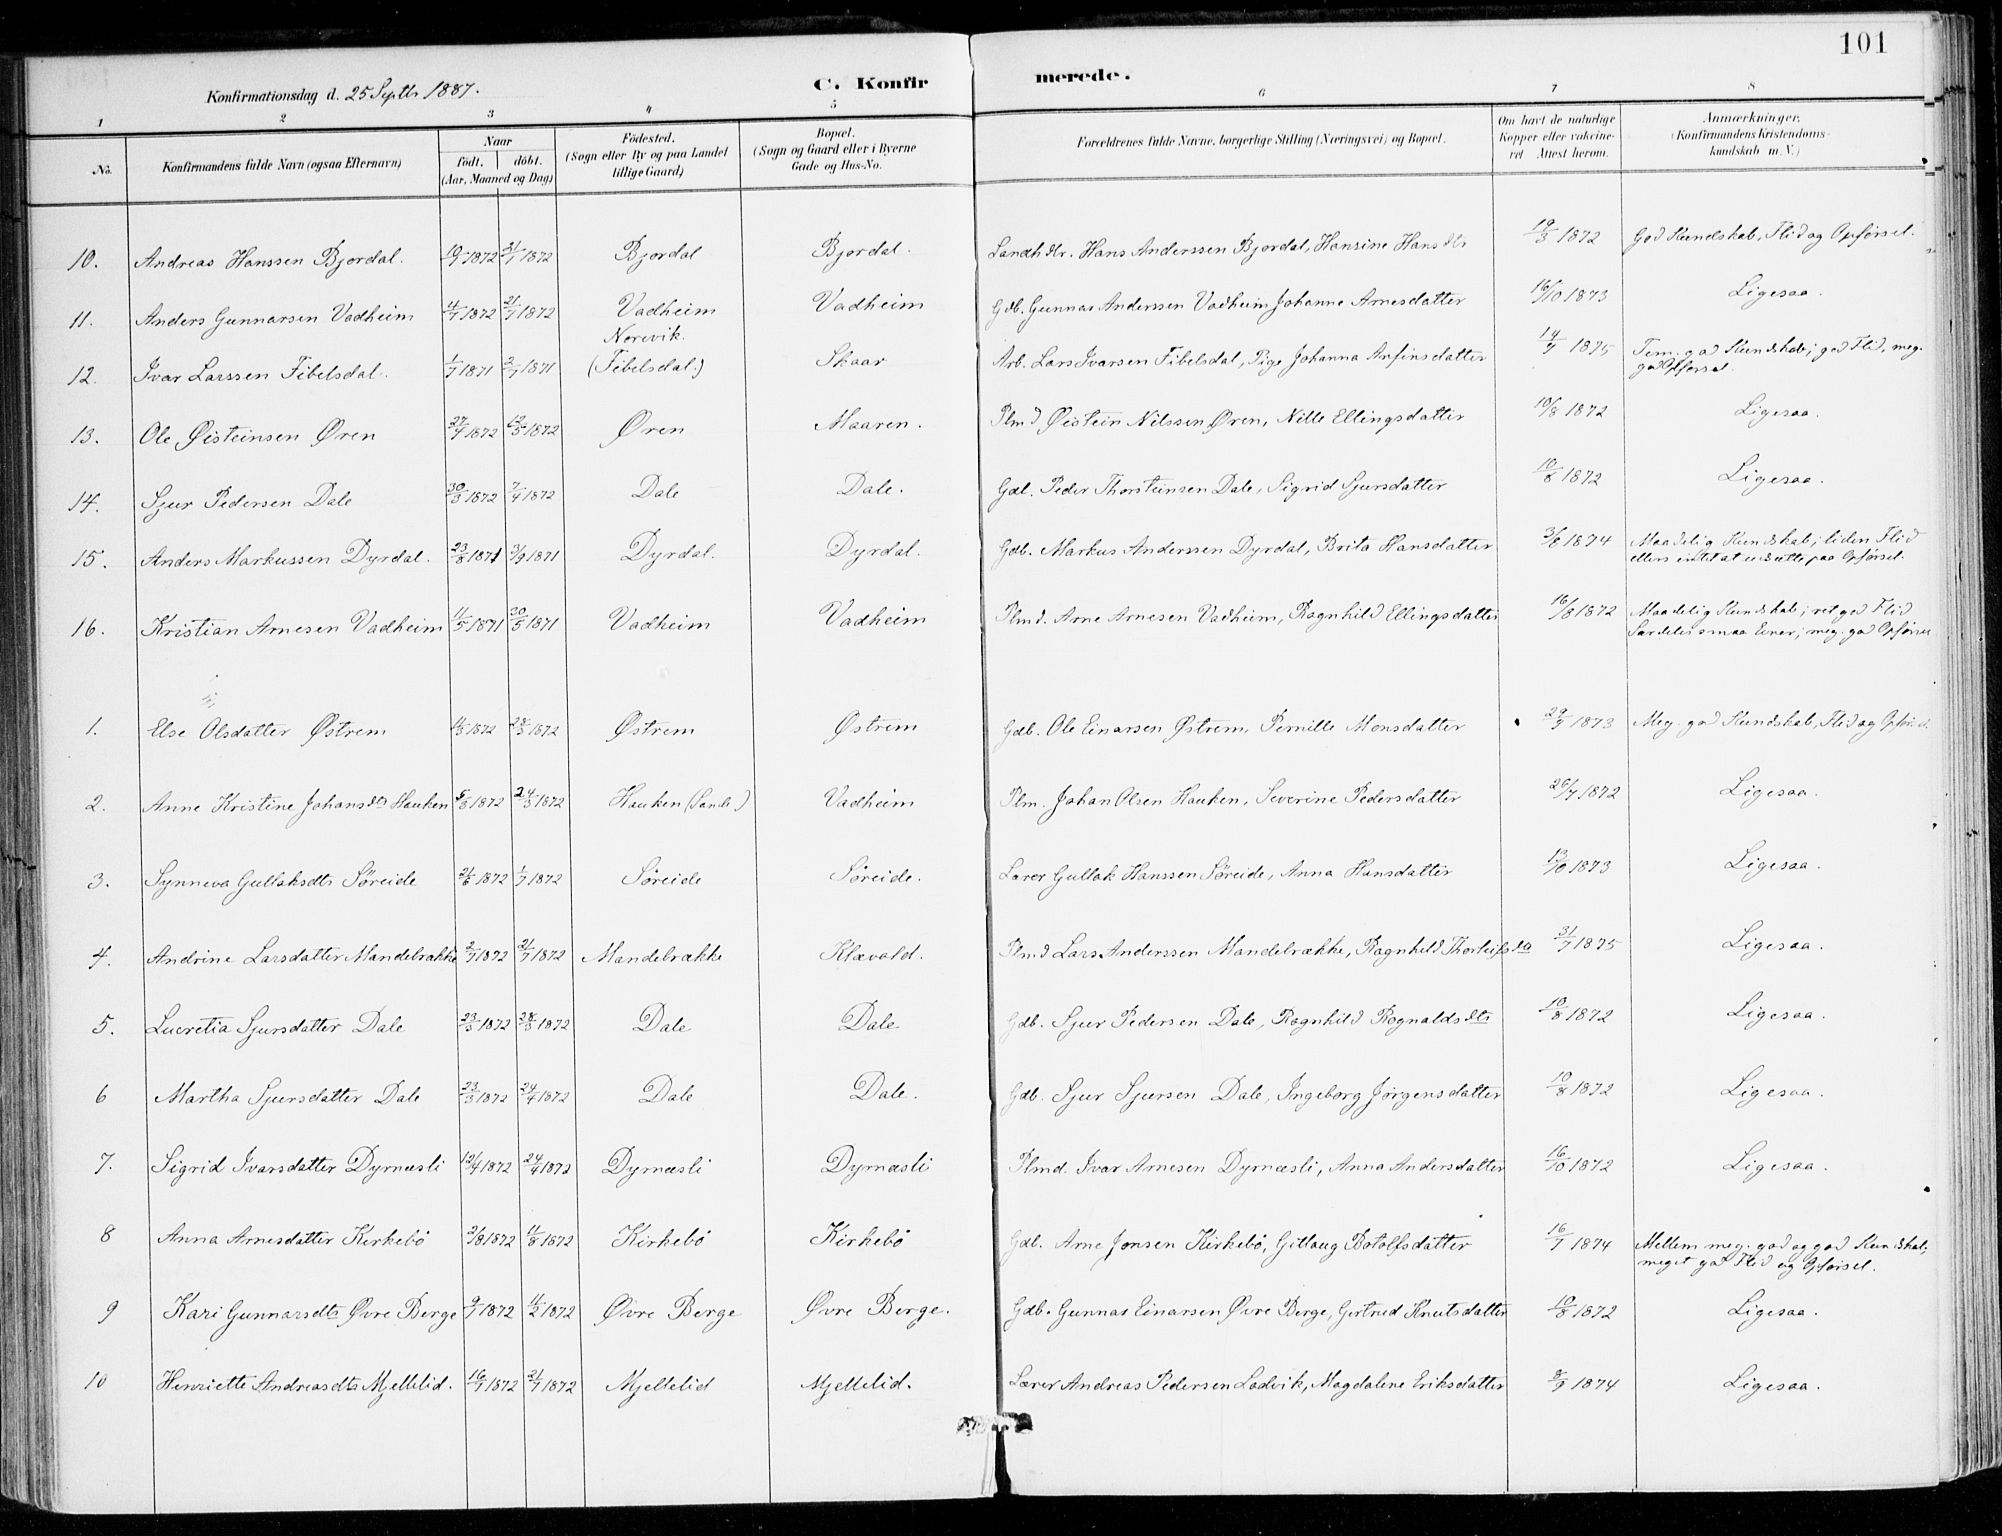 101
Konfirmationsdag d. 25 Septbr 1887.
C. Konfirmerede.
1 2 3 4 5 6 7 8
No. Konfirmandens fulde Navn (ogsaa Efternavn) Naar født, døbt. (Aar, Maaned og Dag) Fødested. (Sogn eller By og paa Landet tillige Gaard) Bopæl. (Sogn og Gaard eller i Byerne Gade og Hus-No. Forældrenes fulde Navne, borgerlige Stilling (Næringsvei) og Bopæl. Om havt de naturlige Kopper eller vakcineret Attest herom. Anmærkninger. (Konfirmandens Kristendomskundskab m. V.)
10. Andreas Hanssen Bjordal. 10/7 1872 21/7 1872 Bjordal Bjordal. Landhdlr. Hans Anderssen Bjordal, Hansine Hansdtr 19/3 1872 God Kundskab, Flid og Opførsel.
11. Anders Gunnarsen Vadheim 4/7 1872 21/7 1872 Vadheim Vadheim Gdb. Gunnar Anderssen Vadheim, Johanne Arnesdatter 16/10 1873 Ligesaa.
12. Ivar Larssen Fibelsdal. 1/7 1871 2/7 1871 Norevik. (Fibelsdal.) Skaar Arb. Lars Ivarsen Fibelsdal, Pige Johanna Anfinsdatter 14/7 1875 Tem. god Kundskab; god Flid, meg. god Opførsel.
13. Ole Øisteinsen Øren 27/4 1872 12/5 1872 Øren Maaren. Plmd Øistein Nilssen Øren, Nille Ellingsdatter 10/8 1872 Ligesaa.
14. Sjur Pedersen Dale 30/3 1872 7/4 1872 Dale Dale. Gdb. Peder Thorsteinsen Dale, Sigrid Sjursdatter 10/8 1872 Ligesaa.
15. Anders Markussen Dyrdal. 23/8 1871 3/9 1871 Dyrdal. Dyrdal. Gdb. Markus Anderssen Dyrdal, Brita Hansdatter 3/6 1874 Maadelig Kundskab; liden Flid ellers intet at udsætte paa Opførsel.
16. Kristian Arnesen Vadheim 11/5 1871 30/5 1871 Vadheim Vadheim Plmd. Arne Arnesen Vadheim, Ragnhild Ellingsdatter 16/8 1872 Maadelig Kundskab; ret god Flid Særdeles smaa Evner; meg. god Opførsel
1. Else Olsdatter Østrem 14/3 1872 28/3 1872 Østrem Østrem Gdb. Ole Einarsen Østrem, Pernille Monsdatter 29/7 1873 Meg. god Kundskab, Flid og Opførsel.
2. Anne Kristine Johansdtr Hauken 5/3 1872 24/3 1872 Hauken Vadheim Plm. Johan Olsen Hauken, Severine Pedersdatter 26/7 1872 Ligesaa.
3. Synneva Gullaksdtr Søreide 21/6 1872 1/7 1872 Søreide Søreide. Lærer Gullak Hanssen Søreide, Anna Hansdatter 13/10 1873 Ligesaa.
4. Andrine Larsdatter Mandebrække 2/7 1872 21/7 1872 Mandebrække Klævold. Plmd Lars Anderssen Mandebrække, Ragnhild Thorleifsdtr 31/7 1875 Ligesaa.
5. Lucretia Sjursdatter Dale 23/3 1872 28/3 1872 Dale Dale Gdb. Sjur Pedersen Dale, Ragnhild Ragnaldsdtr 10/8 1872 Ligesaa.
6 Martha Sjursdatter Dale 23/3 1872 24/4 1872 Dale Dale. Gdb. Sjur Sjursen Dale, Ingeborg Jørgensdatter 10/8 1872 Ligesaa.
7. Sigrid Ivarsdatter Dyrnæsli 12/4 1872 24/4 1872 Dyrnæsli Dyrnæsli Plmd. Ivar Arnesen Dyrnæsli, Anna Andersdatter 16/10 1872 Ligesaa.
8 Anna Arnesdatter Kirkebø 2/8 1872 11/8 1872 Kirkebø Kirkebø Gdb. Arne Jonsen Kirkebø, Gitlaug Botolfsdatter 16/7 1874 Mellem meg. god og god Kundskab, meget god Flid og Opførsel.
9 Kari Gunnarsdtr Øvre Berge 9/7 1872 11/2 1872 Øvre Berge Øvre Berge. Gdb. Gunnar Einarsen Øvre Berge, Gertrud Knutsdatter 10/8 1872 Ligesaa.
10 Henriette Andreasdtr Mjellelid. 16/7 1872 21/7 1872 Mjellelid Mjellelid. Lærer Andreas Pedersen Ladvik, Magdalene Eriksdatter 8/9 1874 Ligesaa.